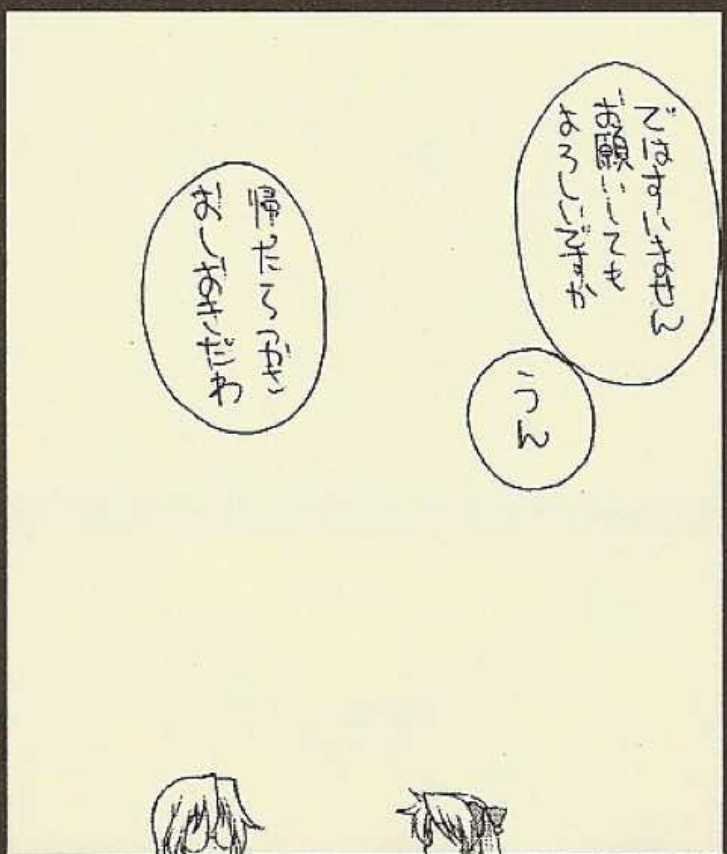 ではすいません
お願いしても
よろしいですか
うん
帰ったらつかさ
おしおきだわ